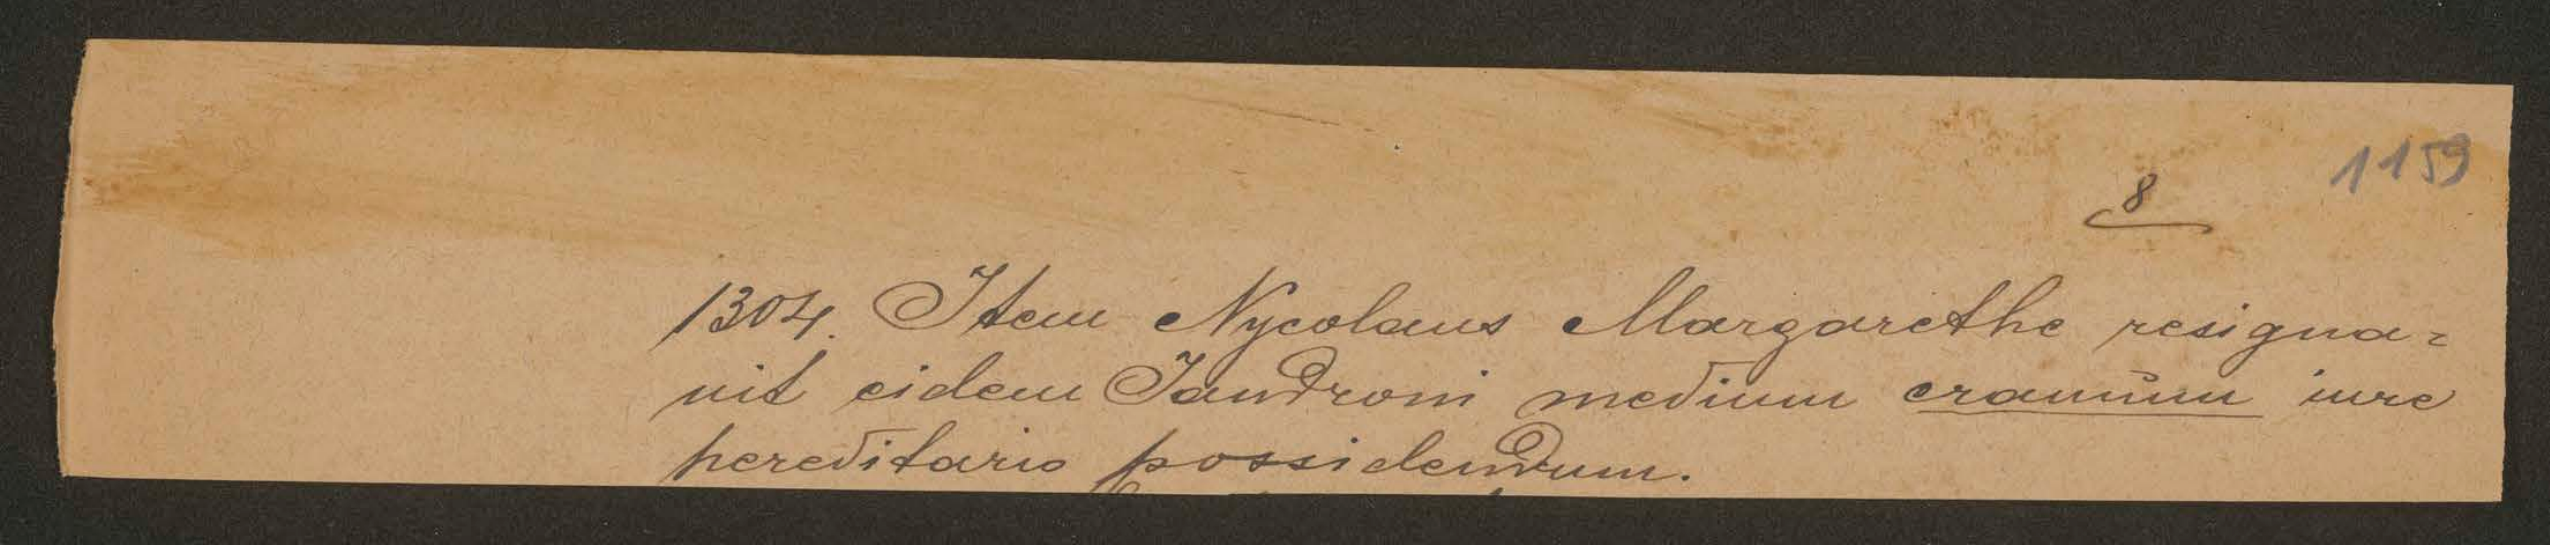 1159
8
1304. Item Nycolaus Margarethe resigna=
uit eidem Jandroni medium cramum iure
hereditario possidendum.